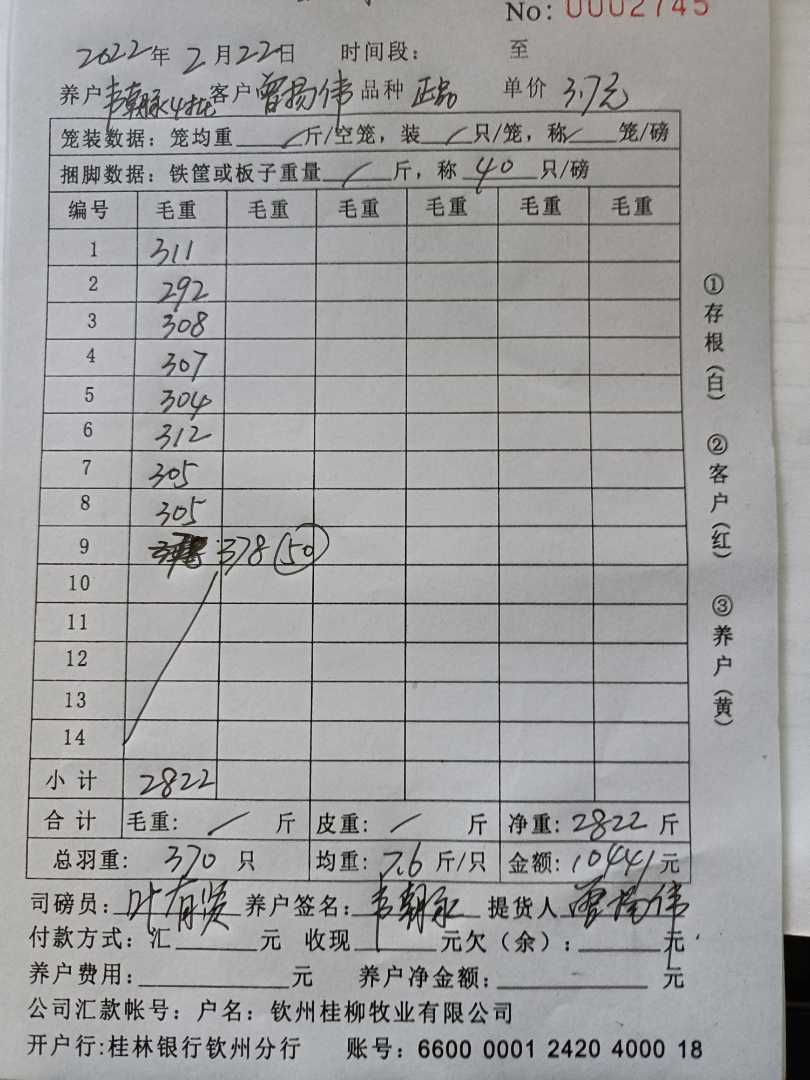 No: 0002745
2022年2月22日 时间段: 至
养户韦朝脉4批 客户曾扬伟 品种 正品 单价 3.7元
笼装数据: 笼均重 / 斤/空笼, 装 / 只/笼, 称 / 笼/磅
捆脚数据: 铁筐或板子重量 / 斤, 称 40 只/磅
编号 毛重 毛重 毛重 毛重 毛重 毛重
1 311
2 292
3 308
4 307
5 304
6 312
7 305
8 305
9 378 (50)
10
11
12
13
14
小计 2822
合计 毛重: / 斤 皮重: / 斤 净重: 2822 斤
总羽重: 370 只 均重: 7.6 斤/只 金额: 10441元
司磅员: 叶有贤 养户签名: 韦朝脉 提货人 曾扬伟
付款方式: 汇 元 收现 元欠(余): 元
养户费用: 元 养户净金额: 元
公司汇款帐号: 户名: 钦州桂柳牧业有限公司
开户行:桂林银行钦州分行 账号: 6600 0001 2420 4000 18
①存根(白) ②客户(红) ③养户(黄)